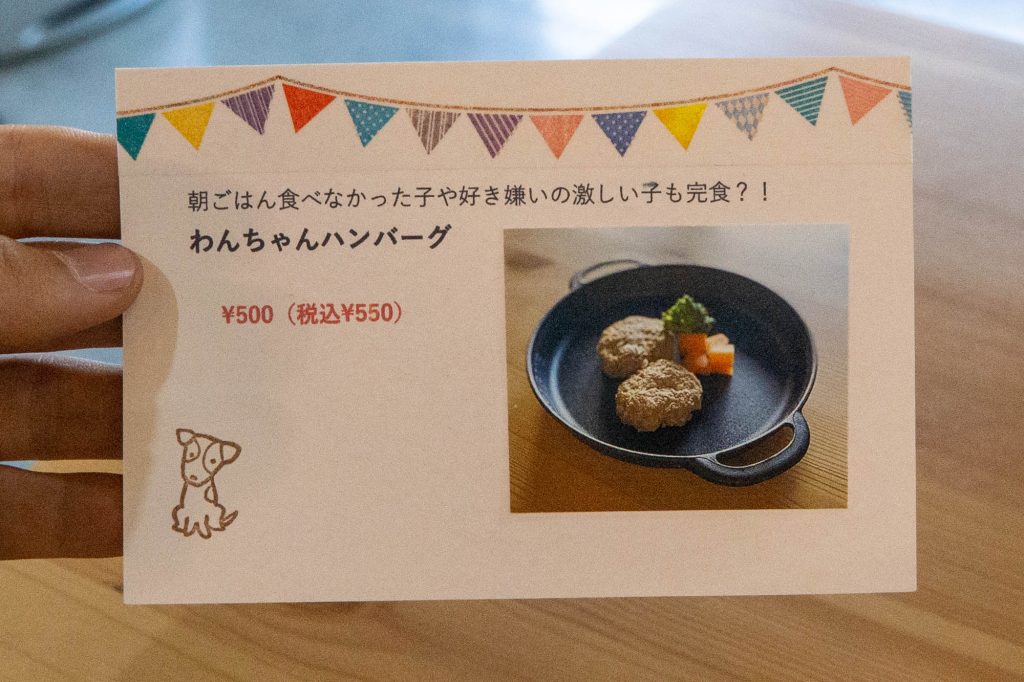 朝ごはん食べなかった子や好き嫌いの激しい子も完食？！
わんちゃんハンバーグ
¥500（税込¥550）